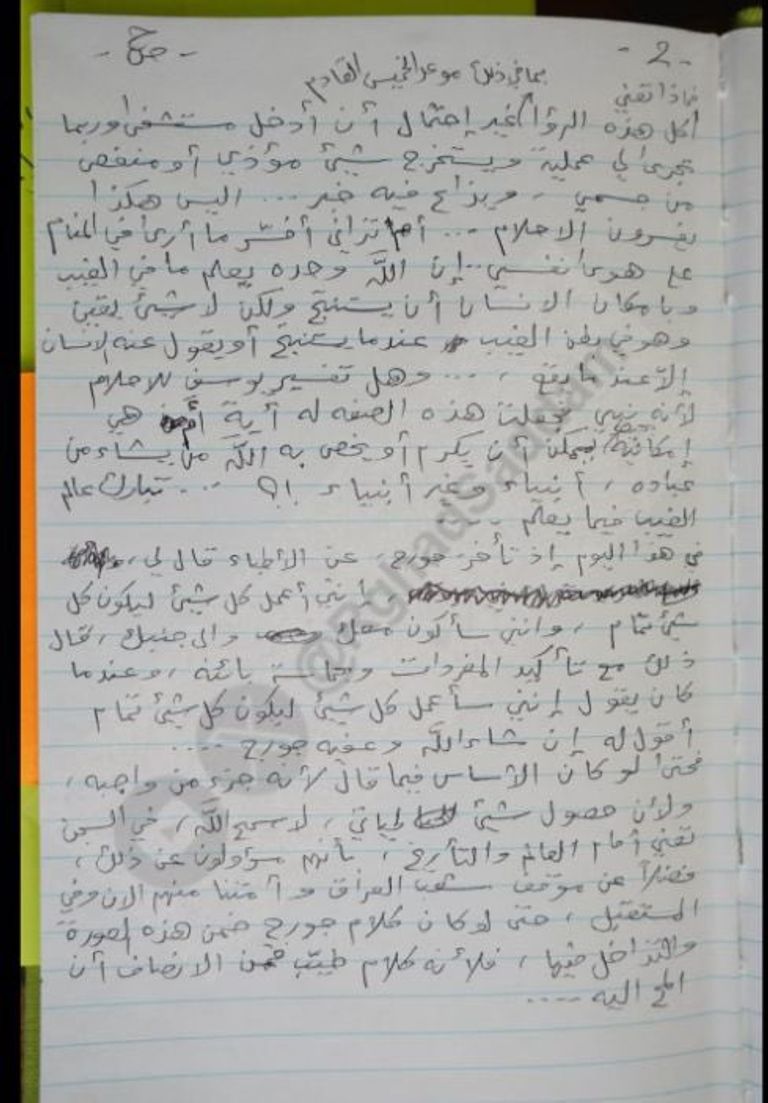 - 2 -
- صح -
بما في ذلك موعد الخميس القادم
فماذا تعني
كل هذه الرؤا غير إحتمال أن أدخل مستشفى وربما
تجرى لي عملية ويستخرج شيئ مؤذي أو منغص
من جسمي ، ويذاع فيه خبر ... اليس هكذا
يفسرون الاحلام ... أم تراني أفسّر ما أرى في المنام
على هوى نفسي .. إن اللّه وحده يعلم ما في الغيب
وبإمكان الانسان أن يستنتج ولكن لا شيئ يقين
وهو في بطن الغيب عندما يستنتج أو يقول عنه الانسان
إلاّ عندما يقع ، ... وهل تفسير يوسف للاحلام
لأنه نبي جعلت هذه الصفه له أية أم هي
إمكانية يمكن أن يكرم أو يخص به اللّه من يشاء من
عباده ، أنبياء وغير أنبياء ؟! ... تبارك عالم
الغيب فيما يعلم ...
في هذا اليوم إذ تأخر جورج عن الأطباء قال لي ،
إنني أعمل كل شيئ ليكون كل
شيئ تمام ، وانني سأكون معك والى جنبك ، قال
ذلك مع تأكيد المفردات وبحماسة بائنه ، وعندما
كان يقول إنني سأعمل كل شيئ ليكون كل شيئ تمام
أقول له إن شاء اللّه وعفيه جورج ....
فحتى لو كان الأساس فيما قال لأنه جزء من واجبه ،
ولأن حصول شيئ لحياتي ، لا سمح اللّه ، في السجن
تعني أمام العالم والتأريخ ، بأنهم مسؤولون عن ذلك ،
فضلاً عن موقف شعب العراق وأمتنا منهم الان وفي
المستقبل ، حتى لو كان كلام جورج ضمن هذه الصورة
والتداخل فيها ، فلأنه كلام طيّب فمن الانصاف أن
المح اليه ....
@RghadSaddam